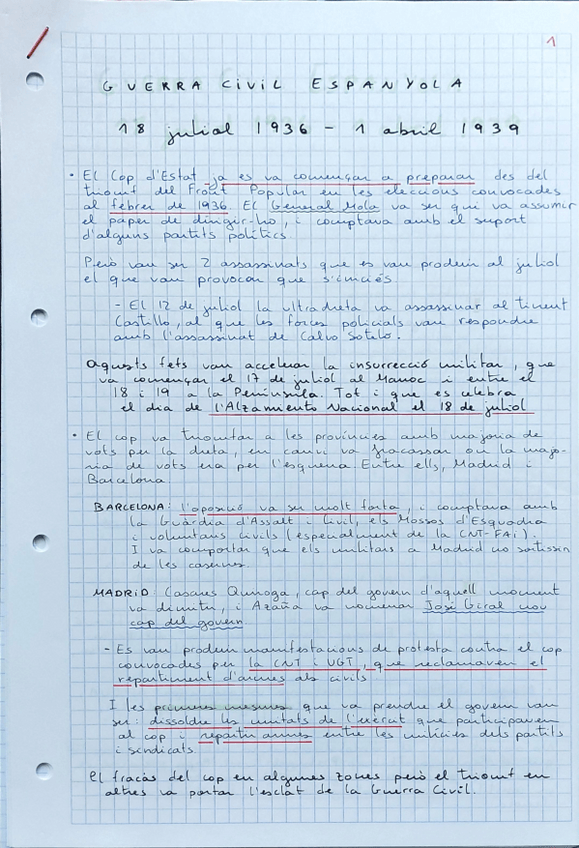 1
GUERRA CIVIL ESPANYOLA
18 juliol 1936 - 1 abril 1939
• El Cop d'Estat ja es va començar a preparar des del
triomf del Front Popular en les eleccions convocades
al febrer de 1936. El General Mola va ser qui va assumir
el paper de dirigir-ho, i comptava amb el suport
d'alguns partits polítics.
Però van ser 2 assassinats que es van produir al juliol
el que van provocar que s'iniciés
- El 12 de juliol la ultradreta va assassinar al tinent
Castillo, al que les forces policials van respondre
amb l'assassinat de Calvo Sotelo.
Aquests fets van accelerar la insurrecció militar, que
va començar el 17 de juliol al Marroc i entre el
18 i 19 a la Península. Tot i que es celebra
el dia de l'Alzamiento Nacional el 18 de juliol
• El cop va triomfar a les províncies amb majoria de
vots per la dreta, en canvi va fracassar on la majo-
ria de vots era per l'esquerra Entre ells, Madrid i
Barcelona
BARCELONA: l'oposició va ser molt forta, i comptava amb
la Guàrdia d'Assalt i Civil, els Mossos d'Esquadra
i voluntaris civils (especialment de la CNT-FAI).
I va comportar que els militars a Madrid no sortissin
de les casernes.
MADRID: Casares Quiroga, cap del govern d'aquell moment
va dimitir, i Azaña va nomenar José Giral nou
cap del govern
- Es van produir manifestacions de protesta contra el cop
convocades per la CNT i UGT, que reclamaven el
repartiment d'armes als civils
I les primeres mesures que va prendre el govern van
ser: dissoldre les unitats de l'exèrcit que participaven
al cop i repartir armes entre les milícies dels partits
i sindicats.
El fracàs del cop en algunes zones però el triomf en
altres va portar l'esclat de la Guerra Civil.